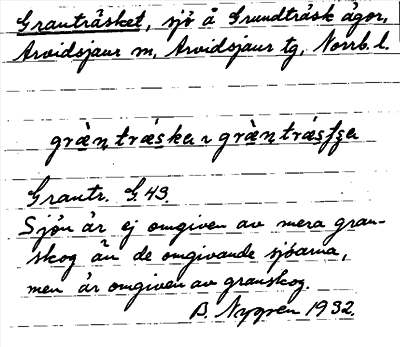 Granträsket, sjö å Grundträsk ägor,
Arvidsjaur sn, Arvidsjaur tg, Norrb. l.
Grantr. G.43.
Sjön är ej omgiven av mera gran-
skog än de omgivande sjöarna,
men är omgiven av granskog.
B. Nygren 1932.